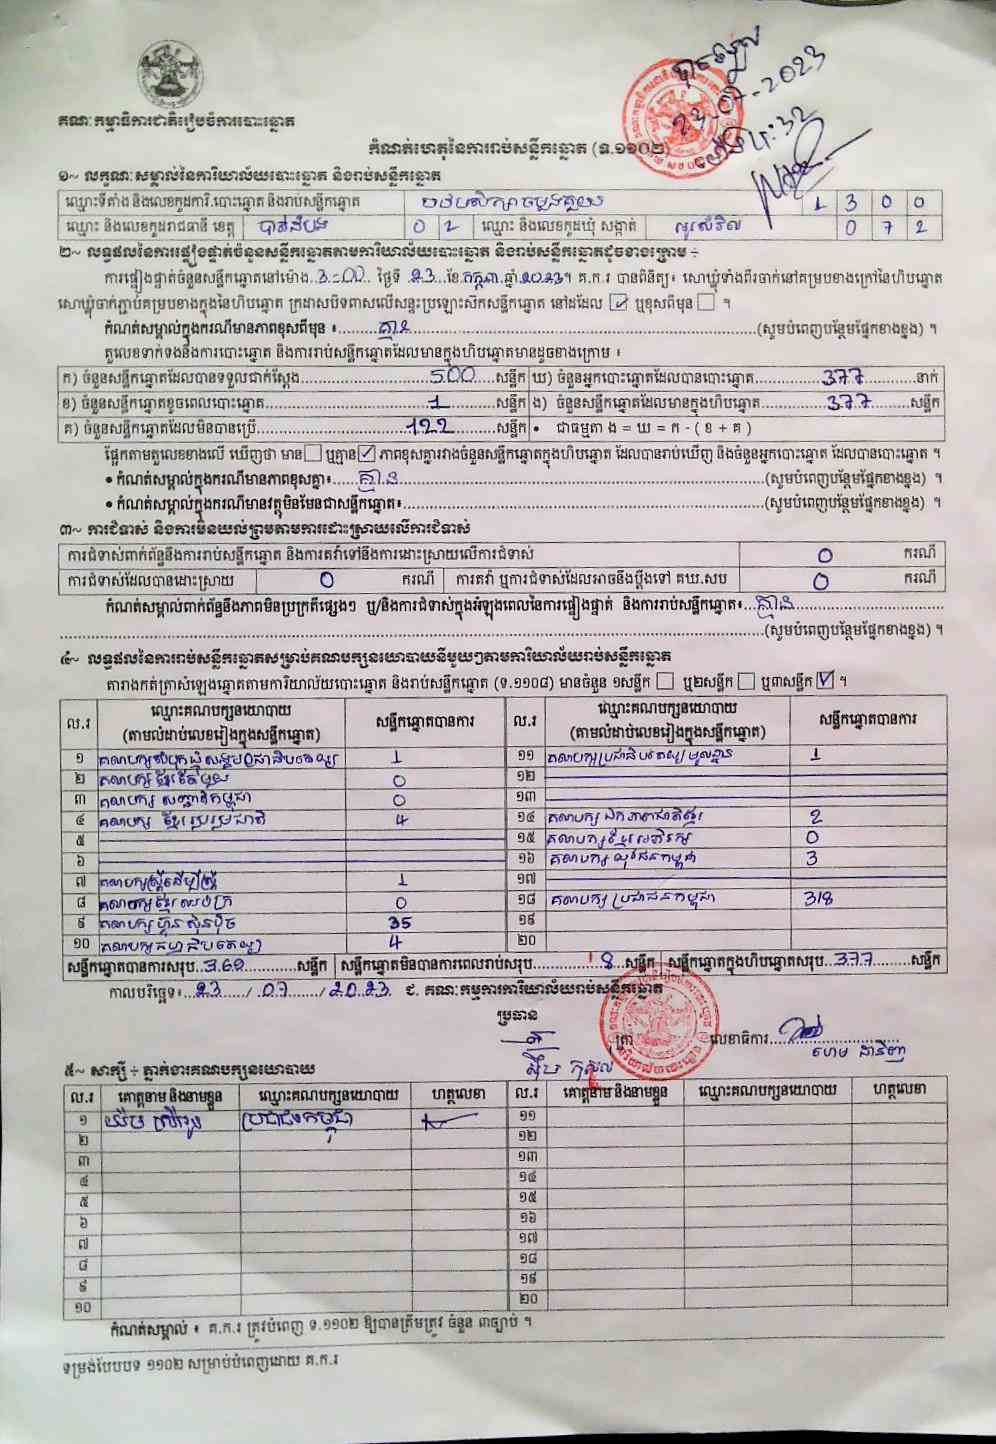 គណៈកម្មាធិការជាតិរៀបចំការបោះឆ្នោត
23-07-2023
កំណត់ហេតុនៃការរាប់សន្លឹកឆ្នោត (ទ.១១០២)
១~ លក្ខណៈសម្គាល់នៃការិយាល័យបោះឆ្នោត និងរាប់សន្លឹកឆ្នោត
ឈ្មោះទីតាំង និងលេខកូដការិ.បោះឆ្នោត និងរាប់សន្លឹកឆ្នោត 1 3 0 0
ឈ្មោះ និងលេខកូដរាជធានី ខេត្ត បាត់ដំបង 0 2 ឈ្មោះ និងលេខកូដឃុំ សង្កាត់ 0 7 2
២~ លទ្ធផលនៃការផ្ទៀងផ្ទាត់ចំនួនសន្លឹកឆ្នោតតាមការិយាល័យបោះឆ្នោត និងរាប់សន្លឹកឆ្នោតដូចខាងក្រោម ÷
ការផ្ទៀងផ្ទាត់ចំនួនសន្លឹកឆ្នោតនៅម៉ោង 3:00 ថ្ងៃទី 23 ខែ កក្កដា ឆ្នាំ 2023។ គ.ក.រ បានពិនិត្យ៖ សោឃ្លុំទាំងពីរចាក់នៅគម្របខាងក្រៅនៃហិបឆ្នោត
សោឃ្លុំចាក់ភ្ជាប់គម្របខាងក្នុងនៃហិបឆ្នោត ក្រដាសបិទពាសលើសន្ទះប្រឡោះសឹកសន្លឹកឆ្នោត នៅដដែល ☑ ឬខុសពីមុន ☐ ។
កំណត់សម្គាល់ក្នុងករណីមានភាពខុសពីមុន ៖ គ្មាន (សូមបំពេញបន្ថែមផ្នែកខាងខ្នង) ។
តួលេខទាក់ទងនឹងការបោះឆ្នោត និងការរាប់សន្លឹកឆ្នោតដែលមានក្នុងហិបឆ្នោតមានដូចខាងក្រោម ៖
ក) ចំនួនសន្លឹកឆ្នោតដែលបានទទួលជាក់ស្តែង 500 សន្លឹក ឃ) ចំនួនអ្នកបោះឆ្នោតដែលបានបោះឆ្នោត 377 នាក់
ខ) ចំនួនសន្លឹកឆ្នោតខូចពេលបោះឆ្នោត 1 សន្លឹក ង) ចំនួនសន្លឹកឆ្នោតដែលមានក្នុងហិបឆ្នោត 377 សន្លឹក
គ) ចំនួនសន្លឹកឆ្នោតដែលមិនបានប្រើ 122 សន្លឹក • ជាធម្មតា ង = ឃ = ក - ( ខ + គ )
ផ្អែកតាមតួលេខខាងលើ ឃើញថា មាន ☐ ឬគ្មាន ☑ ភាពខុសគ្នារវាងចំនួនសន្លឹកឆ្នោតក្នុងហិបឆ្នោត ដែលបានរាប់ឃើញ និងចំនួនអ្នកបោះឆ្នោត ដែលបានបោះឆ្នោត ។
• កំណត់សម្គាល់ក្នុងករណីមានភាពខុសគ្នា៖ គ្មាន (សូមបំពេញបន្ថែមផ្នែកខាងខ្នង) ។
• កំណត់សម្គាល់ក្នុងករណីមានវត្ថុមិនមែនជាសន្លឹកឆ្នោត៖ (សូមបំពេញបន្ថែមផ្នែកខាងខ្នង) ។
៣~ ការជំទាស់ និងការមិនយល់ព្រមតាមការដោះស្រាយលើការជំទាស់
ការជំទាស់ពាក់ព័ន្ធនឹងការរាប់សន្លឹកឆ្នោត និងការតវ៉ាទៅនឹងការដោះស្រាយលើការជំទាស់ 0 ករណី
ការជំទាស់ដែលបានដោះស្រាយ 0 ករណី ការតវ៉ា ឬការជំទាស់ដែលអាចនឹងប្តឹងទៅ គឃ.សប 0 ករណី
កំណត់សម្គាល់ពាក់ព័ន្ធនឹងភាពមិនប្រក្រតីផ្សេងៗ ឬ/និងការជំទាស់ក្នុងអំឡុងពេលនៃការផ្ទៀងផ្ទាត់ និងការរាប់សន្លឹកឆ្នោត៖ គ្មាន
(សូមបំពេញបន្ថែមផ្នែកខាងខ្នង) ។
៤~ លទ្ធផលនៃការរាប់សន្លឹកឆ្នោតសម្រាប់គណបក្សនយោបាយនីមួយៗតាមការិយាល័យរាប់សន្លឹកឆ្នោត
តារាងកត់ត្រាសំឡេងឆ្នោតតាមការិយាល័យបោះឆ្នោត និងរាប់សន្លឹកឆ្នោត (ទ.១១០៨) មានចំនួន ១សន្លឹក ☐ ឬ២សន្លឹក ☐ ឬ៣សន្លឹក ☑ ។
ល.រ ឈ្មោះគណបក្សនយោបាយ (តាមលំដាប់លេខរៀងក្នុងសន្លឹកឆ្នោត) សន្លឹកឆ្នោតបានការ ល.រ ឈ្មោះគណបក្សនយោបាយ (តាមលំដាប់លេខរៀងក្នុងសន្លឹកឆ្នោត) សន្លឹកឆ្នោតបានការ
១ គណបក្សសំបុកឃ្មុំសង្គមប្រជាធិបតេយ្យ 1 ១១ គណបក្សប្រជាធិបតេយ្យមូលដ្ឋាន 1
២ គណបក្សខ្មែរតែមួយ 0 ១២
៣ គណបក្ស សញ្ជាតិកម្ពុជា 0 ១៣
៤ គណបក្ស ខ្មែររួបរួមជាតិ 4 ១៤ គណបក្ស ឯកភាពជាតិខ្មែរ 2
៥ ១៥ គណបក្សខ្មែរអភិរក្ស 0
៦ ១៦ គណបក្ស យុវជនកម្ពុជា 3
៧ គណបក្សស្ត្រីដើម្បីស្ត្រី 1 ១៧
៨ គណបក្សខ្មែរឈប់ក្រ 0 ១៨ គណបក្ស ប្រជាជនកម្ពុជា 318
៩ គណបក្សហ៊្វុនស៊ិនប៉ិច 35 ១៩
១០ គណបក្សកម្លាំងប្រជាធិបតេយ្យ 4 ២០
សន្លឹកឆ្នោតបានការសរុប 369 សន្លឹក សន្លឹកឆ្នោតមិនបានការពេលរាប់សរុប 8 សន្លឹក សន្លឹកឆ្នោតក្នុងហិបឆ្នោតសរុប 377 សន្លឹក
កាលបរិច្ឆេទ៖ 23 / 07 / 2023 ជ. គណៈកម្មការការិយាល័យរាប់សន្លឹកឆ្នោត
ប្រធាន
ត្រា លេខាធិការ
៥~ សាក្សី ÷ ភ្នាក់ងារគណបក្សនយោបាយ
ល.រ គោត្តនាម និងនាមខ្លួន ឈ្មោះគណបក្សនយោបាយ ហត្ថលេខា ល.រ គោត្តនាម និងនាមខ្លួន ឈ្មោះគណបក្សនយោបាយ ហត្ថលេខា
១ ប្រជាជនកម្ពុជា ១១
២ ១២
៣ ១៣
៤ ១៤
៥ ១៥
៦ ១៦
៧ ១៧
៨ ១៨
៩ ១៩
១០ ២០
កំណត់សម្គាល់ ៖ គ.ក.រ ត្រូវបំពេញ ទ.១១០២ ឱ្យបានត្រឹមត្រូវ ចំនួន ៣ច្បាប់ ។
ទម្រង់បែបបទ ១១០២ សម្រាប់បំពេញដោយ គ.ក.រ